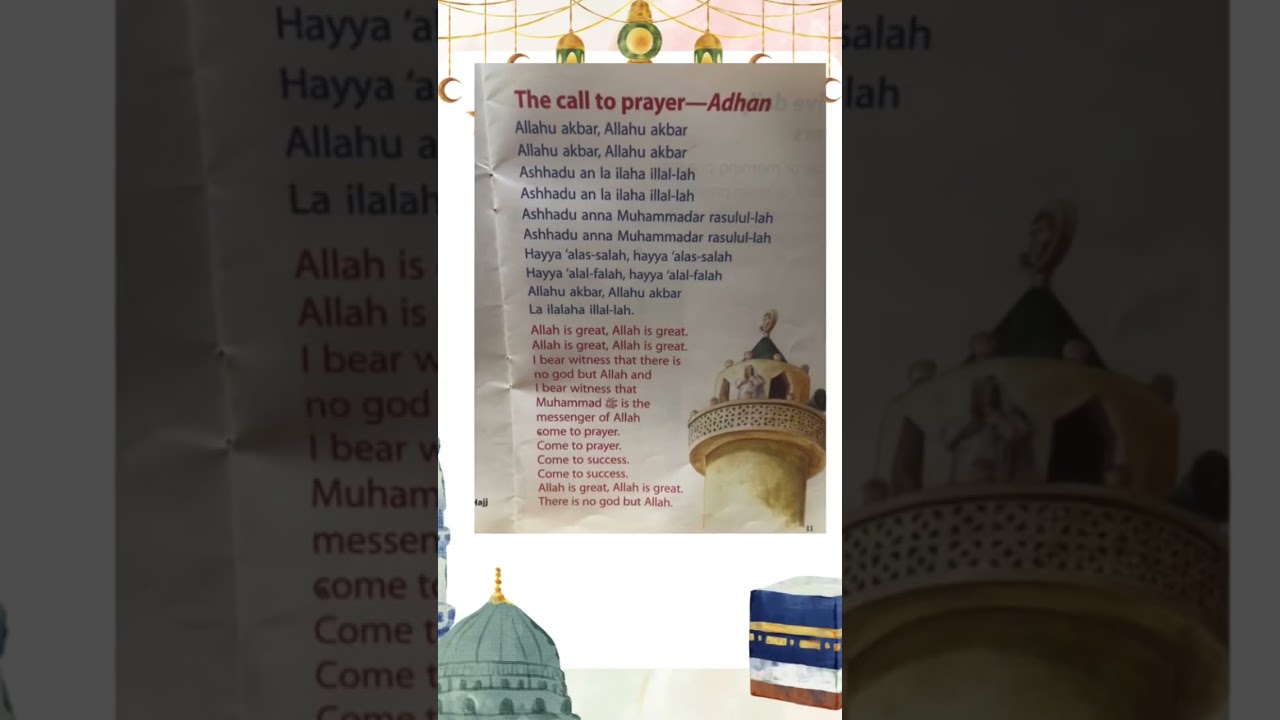 The call to prayer—Adhan
Allahu akbar, Allahu akbar
Allahu akbar, Allahu akbar
Ashhadu an la ilaha illal-lah
Ashhadu an la ilaha illal-lah
Ashhadu anna Muhammadar rasulul-lah
Ashhadu anna Muhammadar rasulul-lah
Hayya ‘alas-salah, hayya ‘alas-salah
Hayya ‘alal-falah, hayya ‘alal-falah
Allahu akbar, Allahu akbar
La ilalaha illal-lah.
Allah is great, Allah is great.
Allah is great, Allah is great.
I bear witness that there is
no god but Allah and
I bear witness that
Muhammad ﷺ is the
messenger of Allah
come to prayer.
Come to prayer.
Come to success.
Come to success.
Allah is great, Allah is great.
There is no god but Allah.
Hajj
33